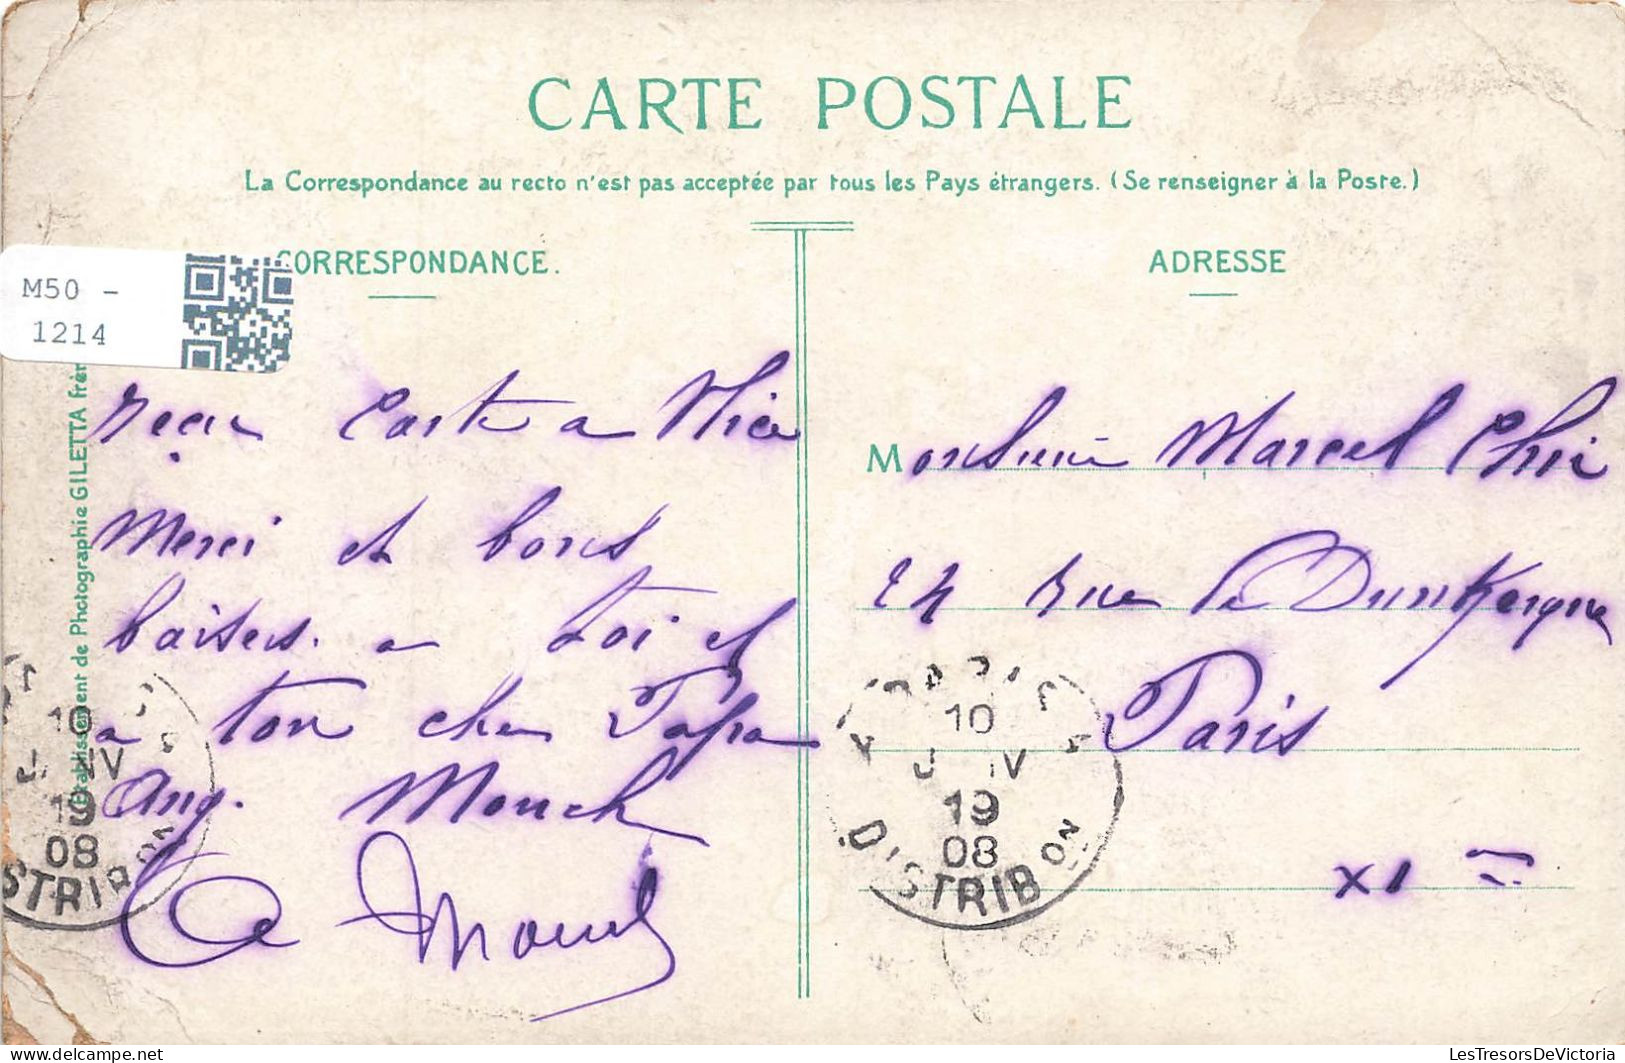 CARTE POSTALE
La Correspondance au recto n'est pas acceptée par tous les Pays étrangers. (Se renseigner à la Poste.)
CORRESPONDANCE.
ADRESSE
M50 -
1214
Etablissement de Photographie GILETTA frèr
carte a Nice
Merci et bons
baisers. a toi et
a ton cher Papa
Aug. Mouch
Monsieur Marcel
24 rue de Dunkerque
Paris
XI
10
IV
19
08
STRIB
10
IV
19
08
DISTRIB ON
LesTresorsDeVictoria
www.delcampe.net